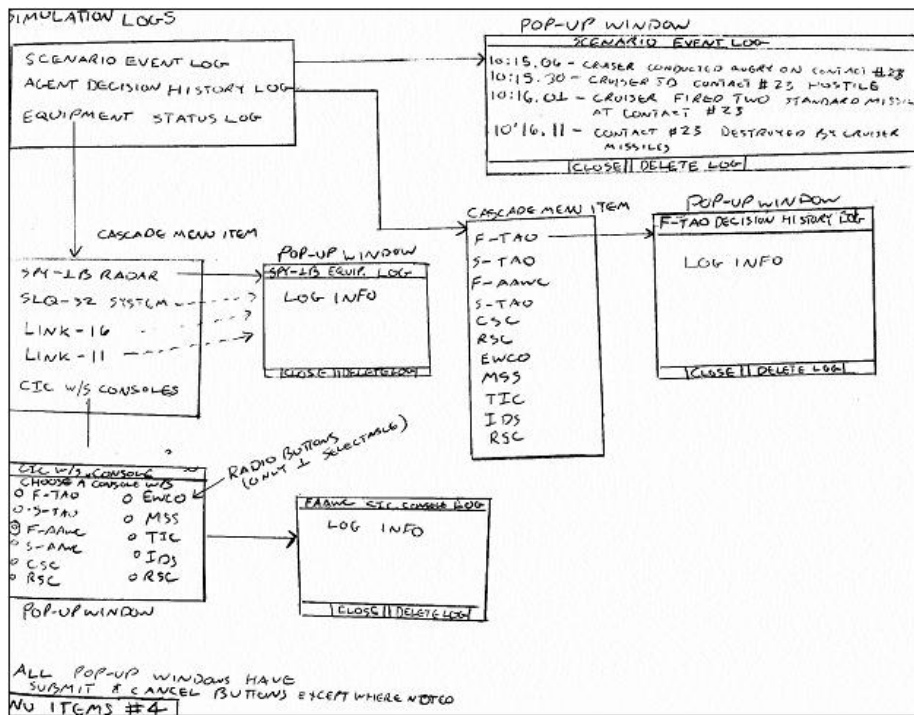 SIMULATION LOGS
SCENARIO EVENT LOG
AGENT DECISION HISTORY LOG
EQUIPMENT STATUS LOG
POP-UP WINDOW
SCENARIO EVENT LOG
10:15.06 - CRASER CONDUCTED QUERY ON CONTACT #23
10:15.30 - CRUISER ID CONTACT #23 HOSTILE
10:16.01 - CRUISER FIRED TWO STANDARD MISSIL
AT CONTACT #23
10'16.11 - CONTACT #23 DESTROYED BY CRUISER
MISSILES
CLOSE DELETE LOG
CASCADE MENU ITEM
SPY-1B RADAR
SLQ-32 SYSTEM
LINK-16
LINK-11
CIC W/S CONSOLES
POP-UP WINDOW
SPY-1B EQUIP. LOG
LOG INFO
CLOSE DELETE LOG
CASCADE MENU ITEM
F-TAO
S-TAO
F-AAWC
S-TAO
CSC
RSC
EWCO
MSS
TIC
IDS
RSC
POP-UP WINDOW
F-TAO DECISION HISTORY LOG
LOG INFO
CLOSE DELETE LOG
CIC W/S CONSOLE
CHOOSE A CONSOLE W/S
F-TAO
S-TAO
F-AAWC
S-AAWC
CSC
RSC
EWCO
MSS
TIC
IDS
RSC
POP-UP WINDOW
RADIO BUTTONS
(ONLY 1 SELECTABLE)
FAAWC CIC CONSOLE LOG
LOG INFO
CLOSE DELETE LOG
ALL POP-UP WINDOWS HAVE
SUBMIT & CANCEL BUTTONS EXCEPT WHERE NOTED
NU ITEMS #4